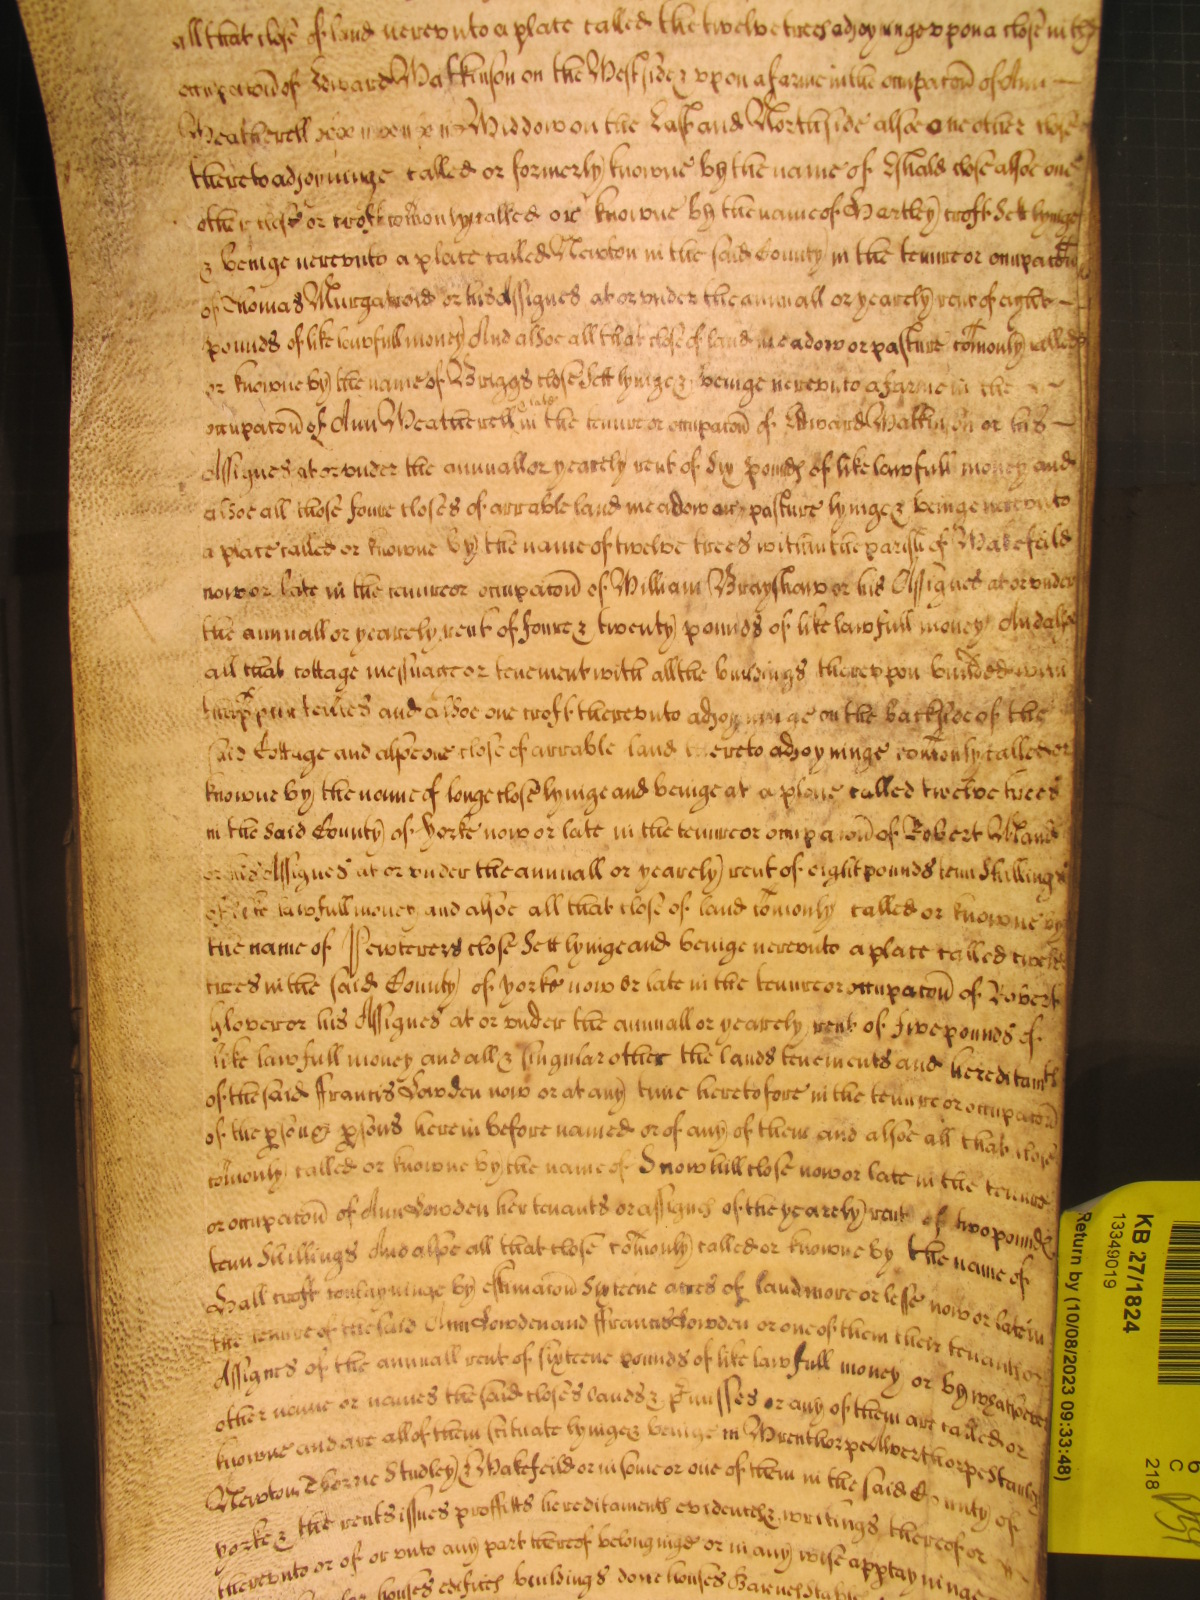 all that close of land nere vnto a place called the twelve trees adjoyninge vpon a close in the
occupacōn of Edward Watkinson on the West side & vpon a farme in the occupacōn of Ann
Weatherell Widdow on the East and North side alsoe one other close
thereto adjoyninge called or formerly knowne by the name of Shald close alsoe one
other close or croft comonly called or knowne by the name of Hartley croft Sett lyinge
& beinge nere vnto a place called Newton in the said County in the tenure or occupacōn
of Thomas Murgatroid or his Assignes at or vnder the annuall or yearely rent of eight
pounds of like lawfull money And alsoe all that close of land meadow or pasture comonly called
or knowne by the name of Briggs close Sett lyinge & beinge nere vnto a farme in the
occupacōn of Ann Weatherell in the tenure or occupacōn of Edward Watkinson or his
Assignes at or vnder the annuall or yearely rent of Six pounds of like lawfull money and
alsoe all those foure closes of arrable land meadow or pasture lyinge & beinge nere vnto
a place called or knowne by the name of twelve trees within the parish of Wakefeild
now or late in the tenure or occupacōn of William Brayshaw or his Assignes at or vnder
the annuall or yearely rent of foure & twenty pounds of like lawfull money And alsoe
all that cottage messuage or tenement with all the buildings therevpon builded with
thapptennces and alsoe one croft therevnto adjoyninge on the backside of the
said Cottage and alsoe one close of arrable land thereto adjoyninge comonly called or
knowne by the name of longe close lyinge and beinge at a place called twelve trees
in the said County of Yorke now or late in the tenure or occupacōn of Robert
or his Assignes at or vnder the annuall or yearely rent of eight pounds tenn Shillings
of like lawfull money and alsoe all that close of land comonly called or knowne by
the name of Pewterers close Sett lyinge and beinge nere vnto a place called twelve
trees in the said County of yorke now or late in the tenure or occupacōn of Robert
Glover or his Assignes at or vnder the annuall or yearely rent of five pounds of
like lawfull money and all & singular other the lands tenements and hereditamts
of the said ffrancis Lowden now or at any time heretofore in the tenure or occupacōn
of the pson & psons herein before named or of any of them and alsoe all that close
comonly called or knowne by the name of Snowhill close now or late in the tenure
or occupacōn of Ann Lowden her tenants or assignes of the yearely rent of two pounds
tenn Shillings And alsoe all that close comonly called or knowne by the name of
Hall croft contayninge by estimacōn Sixteene acres of land more or lesse now or late in
the tenure of the said Ann Lowden and ffrancis Lowden or one of them their tenants or
Assignes of the annuall rent of sixteene pounds of like lawfull money or by whatsoever
other name or names the said closes lands & pmisses or any of them are called or
knowne and are all of them scituate lyinge & beinge in Wrenthorpe Alverthorpe Stanley
Newton Thorne Studley & Wakefeild or in some or one of them in the said County of
yorke & the rents issues proffitts hereditaments evidences writings thereof or
therevnto or of or vnto any part thereof belonginge or in any wise apptayninge
houses edifices buildings dove houses Barnes Stables
KB 27/1824
13349019
Return by (10/08/2023 09:33:48)
C
218